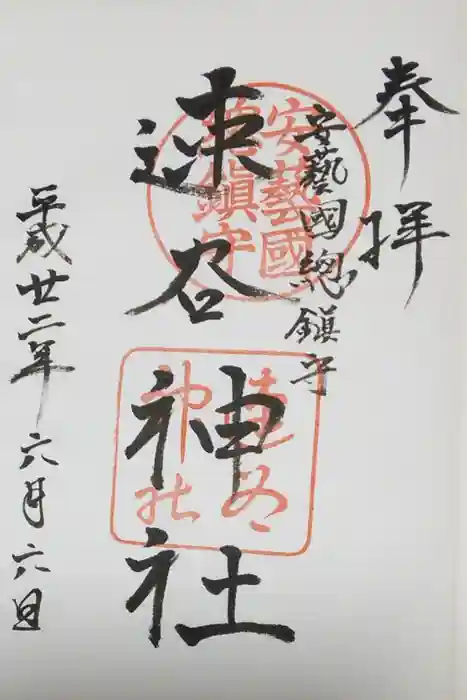 奉拝
安藝國總鎮守
速谷神社
平成廿二年六月六日
安藝國
總鎮守
速谷
神社